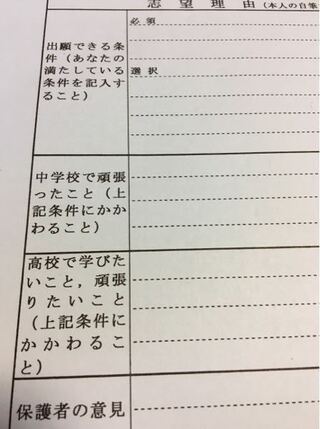 志望理由(本人の自筆
必須
出願できる条
件(あなたの
満たしている
選択
条件を記入す
ること)
中学校で頑張
ったこと(上
記条件にかか
わること)
高校で学びた
いこと,頑張
りたいこと
(上記条件に
かかわるこ
と)
保護者の意見